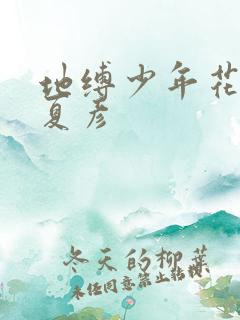 地缚少年花
夏彦
冬天的柳葉
未经同意禁止转载